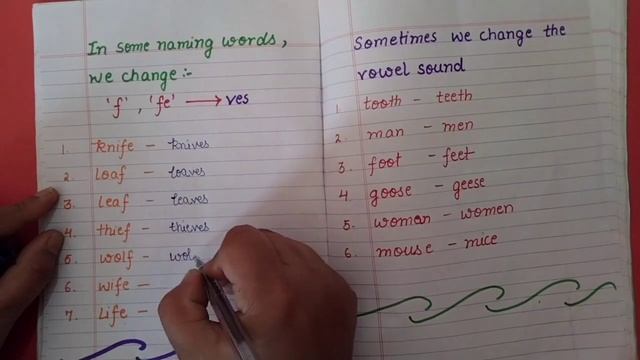 In some naming words,
we change :-
'f', 'fe' → ves
1. knife - knives
2. loaf - loaves
3. leaf - leaves
4. thief - thieves
5. wolf - wol
6. wife -
7. life -
Sometimes we change the
vowel sound
1. tooth - teeth
2. man - men
3. foot - feet
4. goose - geese
5. woman - women
6. mouse - mice